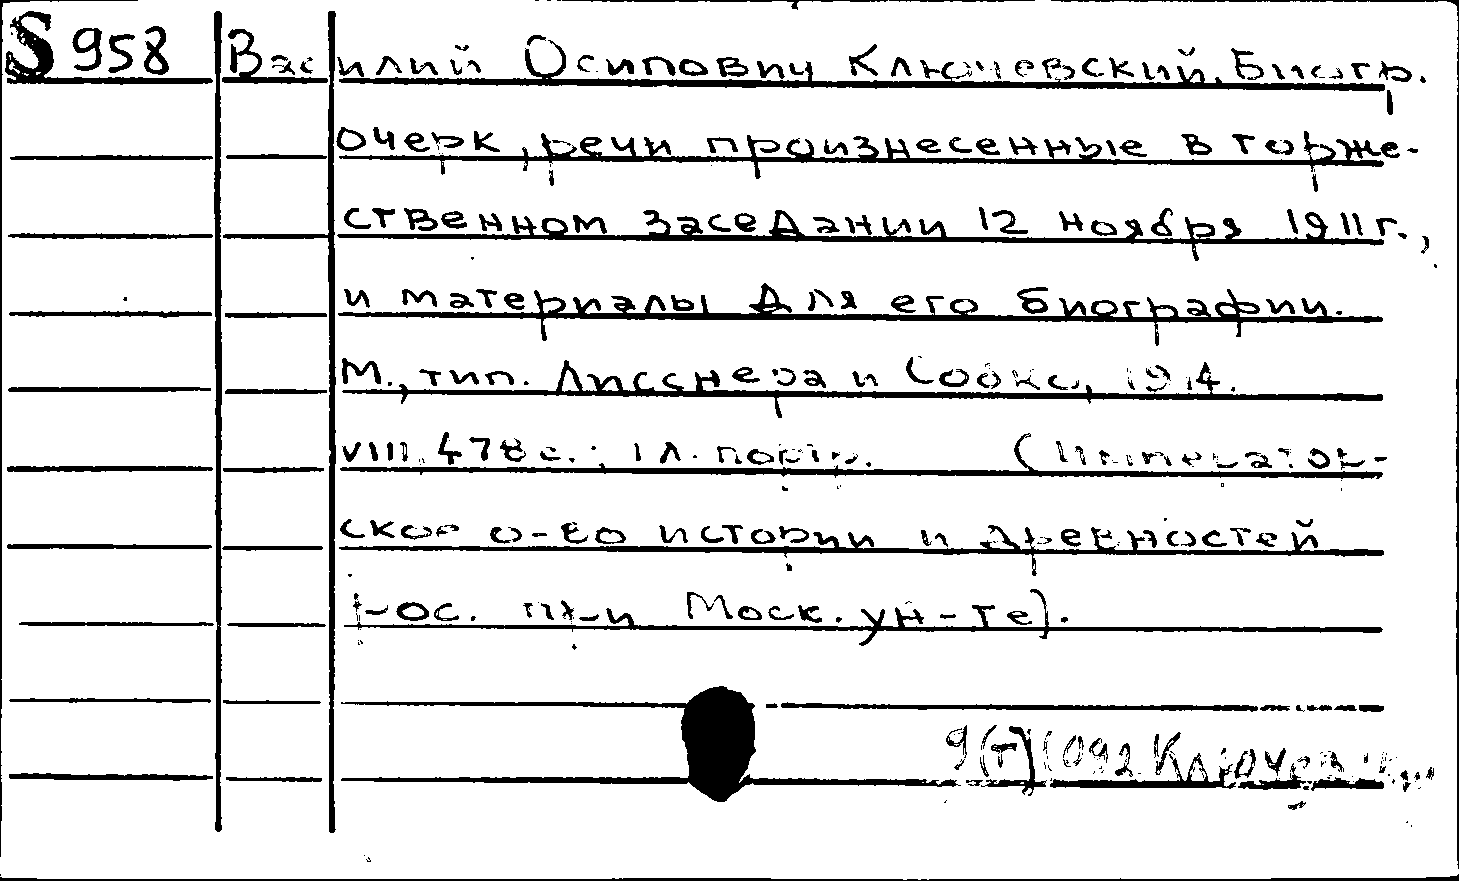 S 958 Василий Осипович Ключевский. Биогр.
очерк, речи произнесенные в торже-
ственном заседании 12 ноября 1911 г.,
и материалы для его биографии.
М., тип. Лисснера и Собко, 1914.
VIII, 478 с.; 1 л. портр. (Император-
ское о-во истории и древностей
рос. при Моск. ун-те).
9(т)1(092 Ключевский